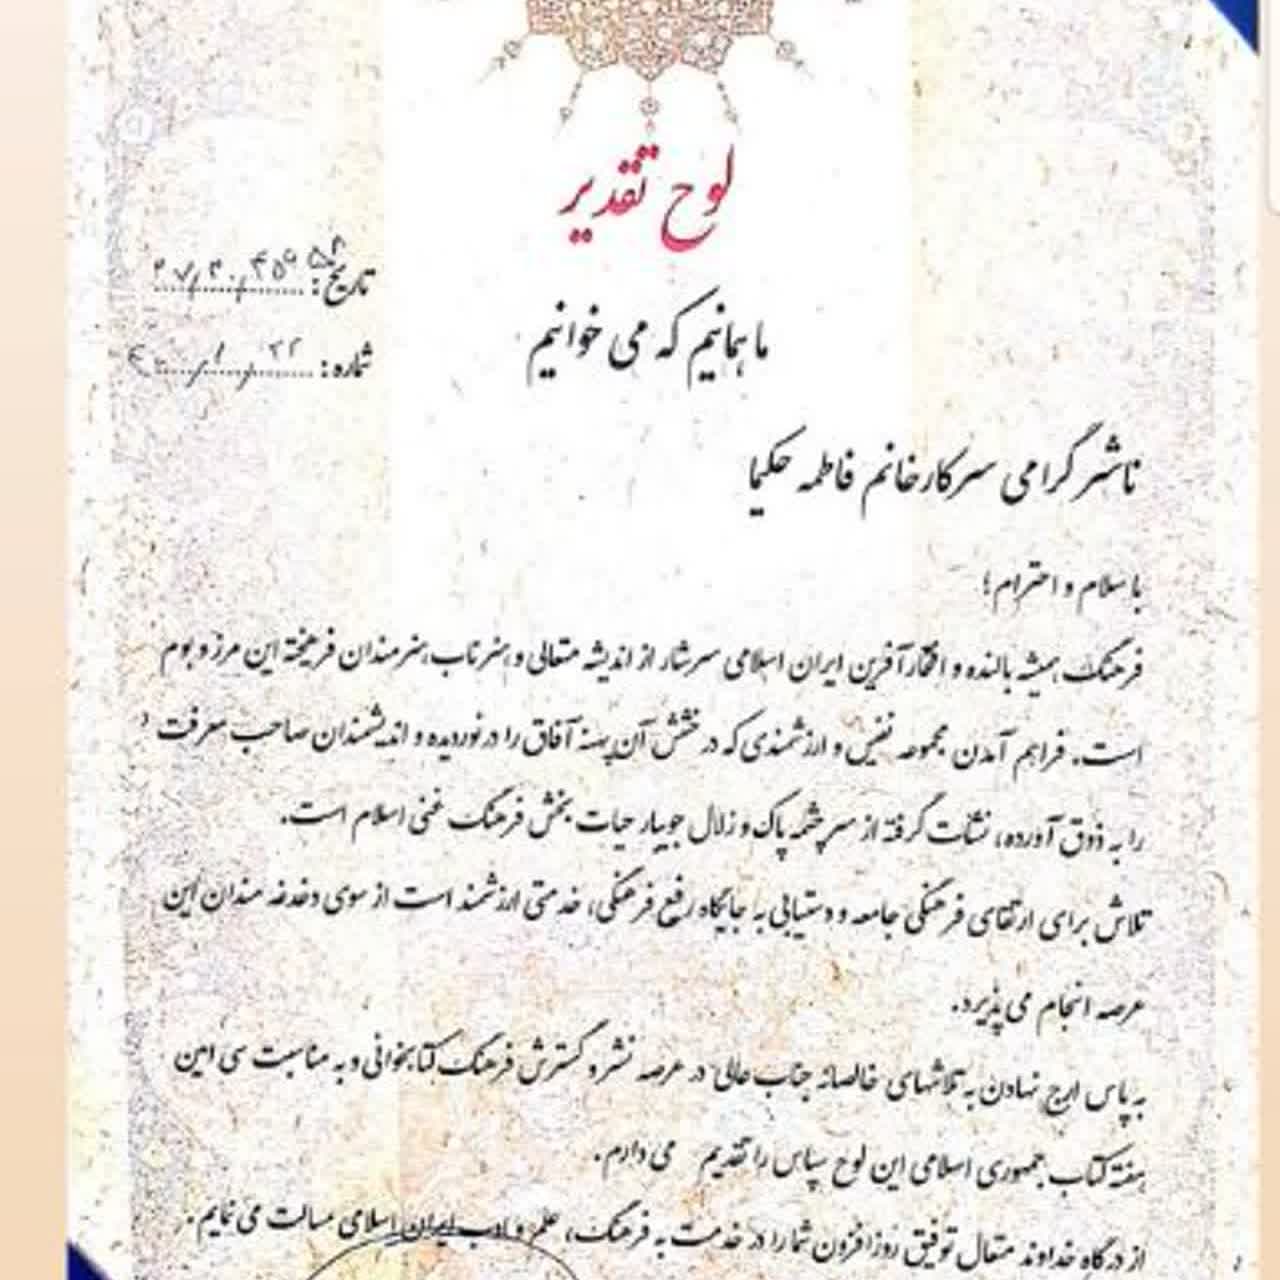 لوح تقدیر
تاریخ:
ما همانیم که می خوانیم
شماره:
ناشر گرامی سرکار خانم فاطمه حکیما
با سلام و احترام؛
فرهنگ همیشه بالنده و افتخارآفرین ایران اسلامی سرشار از اندیشه متعالی و هنر ناب هنرمندان فرهیخته این مرز و بوم
است. فراهم آمدن مجموعه نفیس و ارزشمندی که درخشش آن پهنه آفاق را درنوردیده و اندیشمندان صاحب معرفت
را به ذوق آورده، نشئت گرفته از سرچشمه پاک و زلال جویبار حیات بخش فرهنگ غنی اسلام است.
تلاش برای ارتقای فرهنگی جامعه و دستیابی به جایگاه رفیع فرهنگی، خدمتی ارزشمند است از سوی دغدغه مندان این
عرصه انجام می پذیرد.
به پاس ارج نهادن به تلاشهای خالصانه جناب عالی در عرصه نشر و گسترش فرهنگ کتابخوانی و به مناسبت سی امین
هفته کتاب جمهوری اسلامی این لوح سپاس را تقدیم می دارم.
از درگاه خداوند متعال توفیق روزافزون شما را در خدمت به فرهنگ، علم و ادب ایران اسلامی مسالت می نمایم.